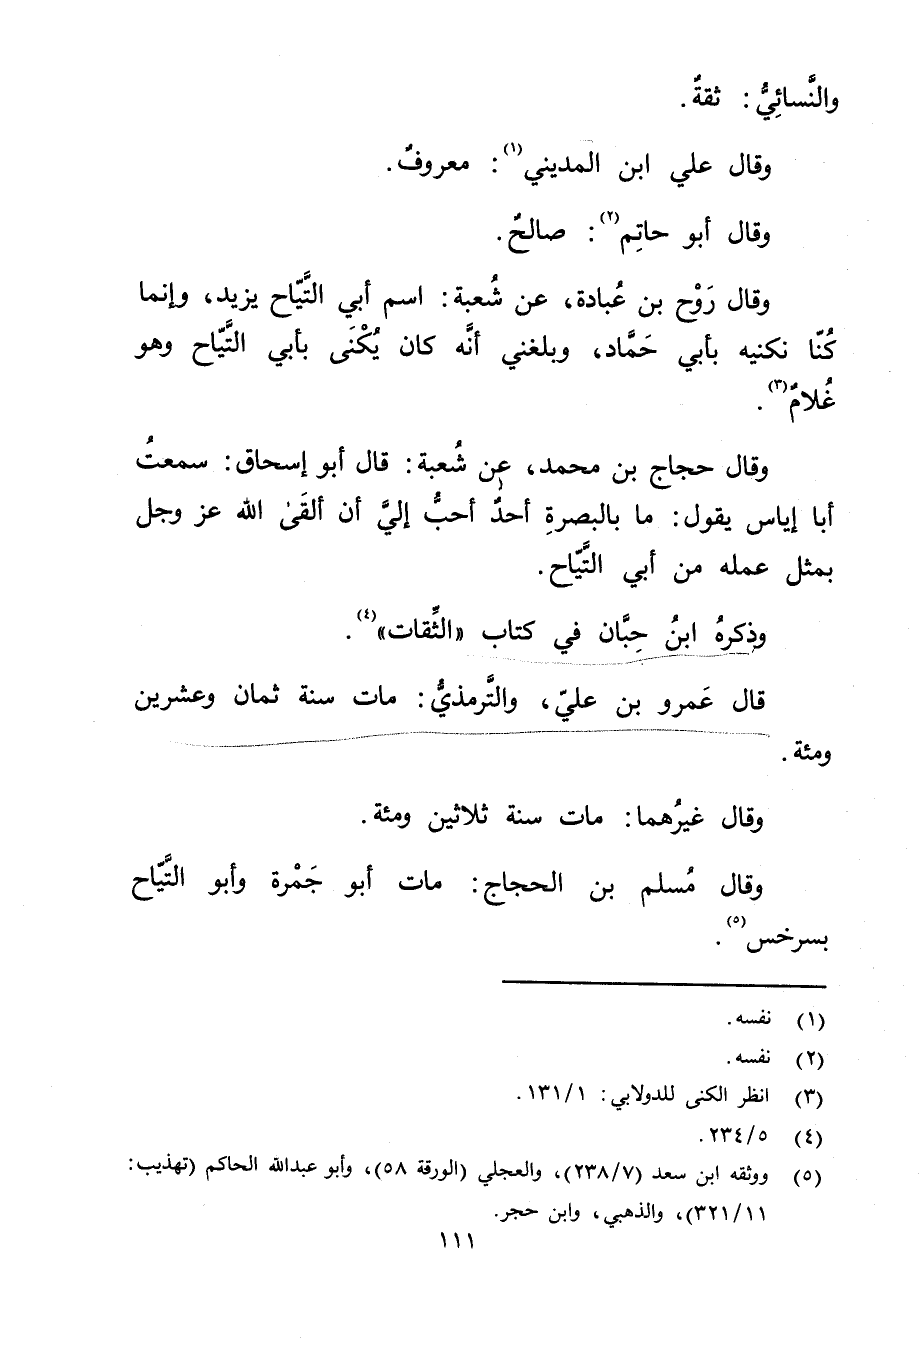 والنَّسائِيُّ: ثقةٌ.
وقال علي ابن المديني(١): معروفٌ.
وقال أبو حاتِم(٢): صالحٌ.
وقال رَوْح بن عُبادة، عن شُعبة: اسم أبي التَّيّاح يزيد، وإنما
كُنّا نكنيه بأبي حَمَّاد، وبلغني أنَّه كان يُكْنَى بأبي التَّيّاح وهو
غُلامٌ(٣).
وقال حجاج بن محمد، عن شُعبة: قال أبو إسحاق: سمعتُ
أبا إياس يقول: ما بالبصرةِ أحدٌ أحبُّ إليَّ أن ألقَىٰ الله عز وجل
بمثل عمله من أبي التَّيّاح.
وذكرهُ ابنُ حِبَّان في كتاب «الثِّقات»(٤).
قال عَمرو بن عليّ، والتَّرمذيُّ: مات سنة ثمان وعشرين
ومئة.
وقال غيرُهما: مات سنة ثلاثين ومئة.
وقال مُسلم بن الحجاج: مات أبو جَمْرة وأبو التَّيّاح
بسرخس(٥).
(١) نفسه.
(٢) نفسه.
(٣) انظر الكنى للدولابي: ١٣١/١.
(٤) ٢٣٤/٥.
(٥) ووثقه ابن سعد (٢٣٨/٧)، والعجلي (الورقة ٥٨)، وأبو عبدالله الحاكم (تهذيب:
٣٢١/١١)، والذهبي، وابن حجر.
١١١